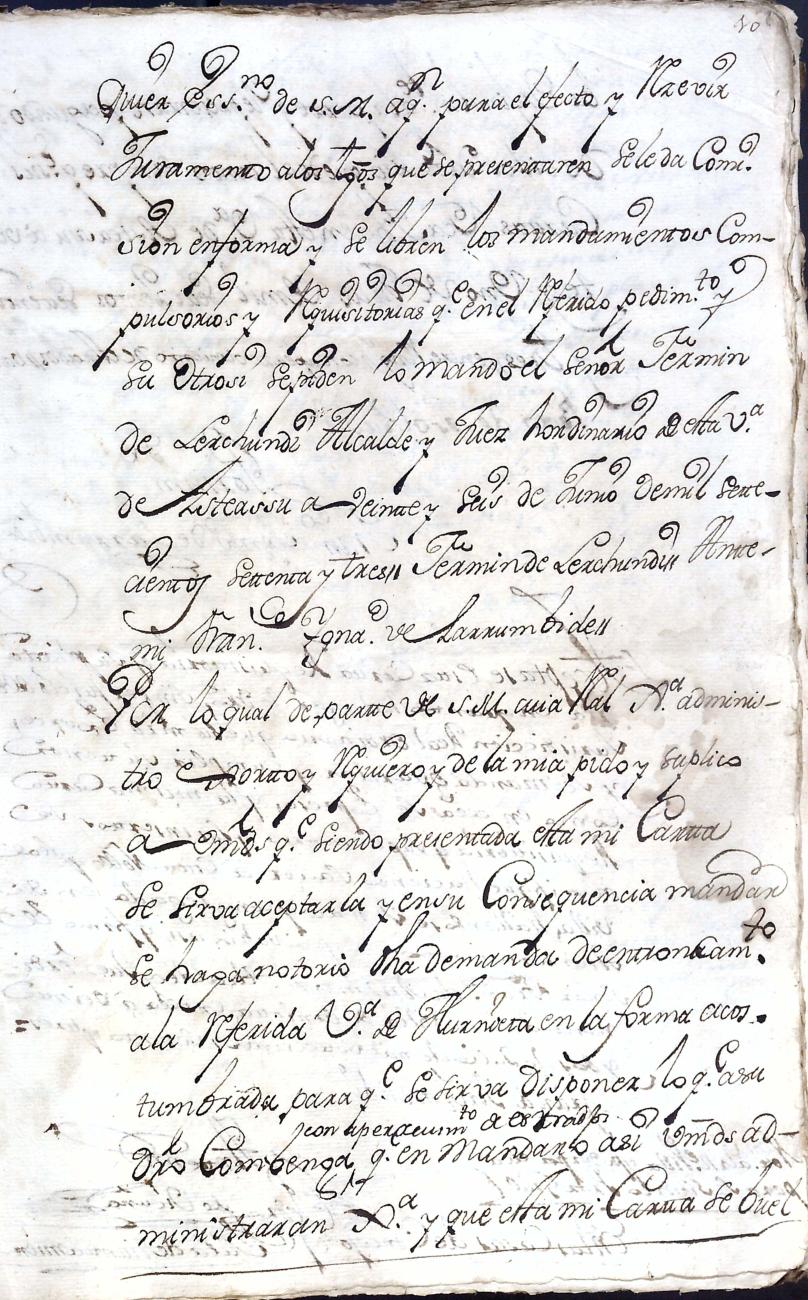 10
quier Ess.no de S. M. aq.n para el efecto y Rzevir
Juramento a los tgos que se presentaren se le da Comi-
sion en forma y se libren los mandamientos Com-
pulsorios y Rquisitorias q.e en el Rferido pedim.to y
su Otrosi se piden lo mando el Señor Fermin
de Lerchundi Alcalde y Juez hordinario de esta V.a
de Asteassu a veinte y seis de Junio de mil sette-
cientos settenta y tres// Fermin de Lerchundi// Ante-
mi Fran.co Ygna.o de Larrumbide//
Por lo qual de partte de S. M. cuia Rl Xa.a adminis-
tro exortto y Rquiero y de la mia pido y suplico
a Vmds q.e siendo presentada esta mi Cartta
se sirva aceptarla y en su Consequencia mandar
se haga notorio dha demanda de entroncam.to
a la Rferida V.a de Hurnieta en la forma acos-
tumbrada para q.e se sirva disponer lo q.e a su
con apercevim.to de estrados
dro Combenga, q.e en Mandarlo asi Vmds ad-
ministraran Xa.a y que esta mi Cartta se buel